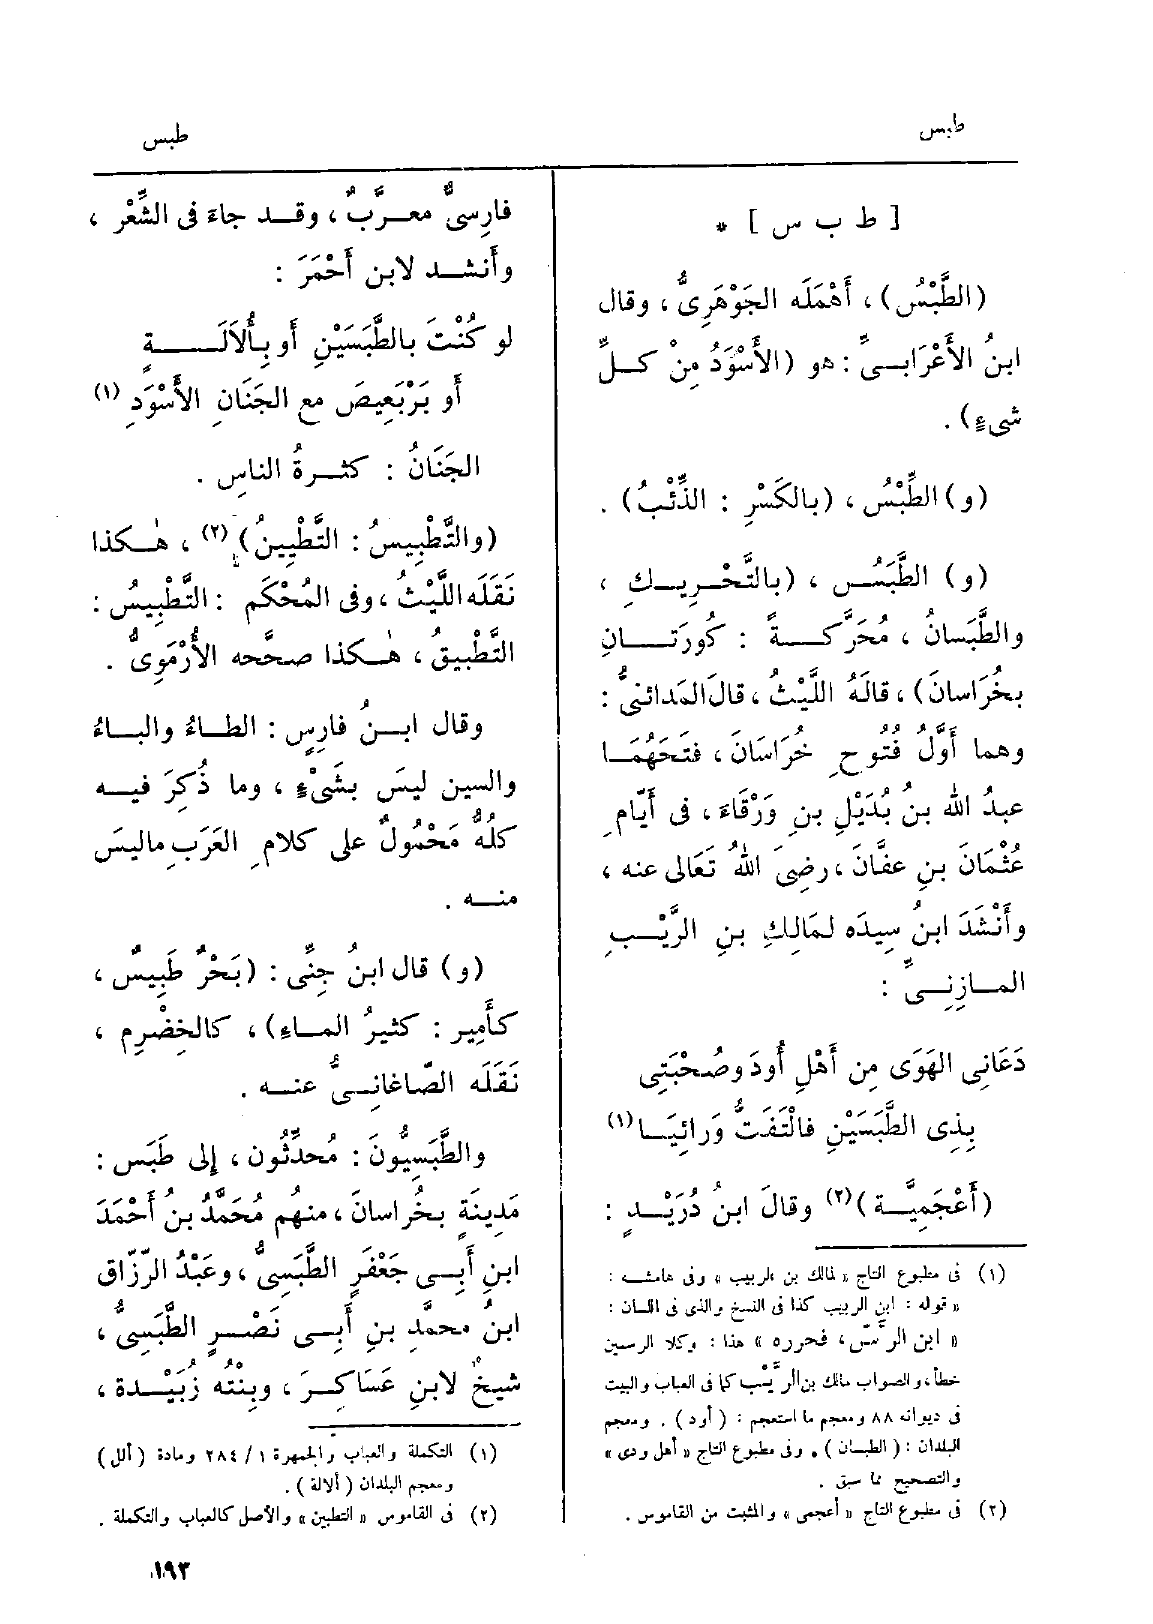 طبس
طبس
[ ط ب س ] *
(الطَّبْسُ)، أَهْمَلَه الجَوْهَرِىُّ، وقال
ابنُ الأَعْرَابىِّ: هو (الأَسْوَدُ مِنْ كلِّ
شىءٍ).
(و) الطِّبْسُ، (بالكَسْرِ: الذِّئْبُ).
(و) الطَّبَسُ، (بالتَّحْرِيكِ،
والطَّبَسانُ، مُحَرَّكةً: كُورَتَانِ
بخُرَاسانَ)، قالَهُ اللَّيْثُ، قالَ المَدائنىُّ:
وهما أَوَّلُ فُتُوحِ خُرَاسَانَ، فتَحَهُمَا
عبدُ الله بنُ بُدَيْلِ بنِ وَرْقَاءَ، فى أَيّامِ
عُثْمَانَ بنِ عفَّانَ، رضِىَ اللهُ تَعَالى عنه،
وأَنْشَدَ ابنُ سِيدَه لمَالِكِ بنِ الرَّيْبِ
المازِنِىِّ:
دَعَانِى الهَوَى مِن أَهْلِ أُودَ وصُحْبَتِى
بِذِى الطَّبَسَيْنِ فالْتَفَتُّ وَرائِيَا (١)
(أَعْجَمِيَّة) (٢) وقالَ ابنُ دُرَيْدٍ:
(١) فى مطبوع التاج «لمالك بن الريب» وفى هامشه:
« قوله: ابن الريب كذا فى النسخ والذى فى اللسان:
« ابن الرَّيِّس، فحرره » هذا: وكلا الرسمين
خطأ، والصواب مالك بن الرَّيْب كما فى العباب والبيت
فى ديوانه ٨٨ ومعجم ما استعجم: (أود). ومعجم
البلدان: (الطبسان). وفى مطبوع التاج «أهل ودى»
والتصحيح مما سبق.
(٢) فى مطبوع التاج «أعجمى» والمثبت من القاموس.
فارِسىٌّ معرَّبٌ، وقد جاءَ فى الشِّعْر،
وأَنشد لابن أَحْمَرَ:
لو كُنْتَ بالطَّبَسَيْنِ أَو بِأُلاَلَةٍ
أَو بَرْبَعِيصَ مع الجَنَانِ الأَسْوَدِ (١)
الجَنَانُ: كثرةُ الناسِ.
(والتَّطْبِيسُ: التَّطْيِينُ) (٢)، هٰكذا
نَقَلَه اللَّيْثُ، وفى المُحْكَم: التَّطْبِيسُ:
التَّطْبِيقُ، هٰكذا صحَّحه الأُرْمَوِىُّ.
وقال ابنُ فارِسٍ: الطاءُ والباءُ
والسين ليسَ بشَىْءٍ، وما ذُكِرَ فيه
كلُّهُ مَحْمُولٌ على كلامِ العَرَبِ ماليسَ
منه.
(و) قال ابنُ جِنِّى: (بَحْرٌ طَبِيسٌ،
كأَمِير: كثيرُ الماءِ)، كالخِضْرِم،
نَقَلَه الصّاغانِىُّ عنه.
والطَّبَسِيُّونَ: مُحدِّثُون، إِلى طَبَس:
مَدِينَةٍ بخُراسانَ، منهُم مُحَمَّدُ بنُ أَحْمَدَ
ابنِ أَبِى جَعْفَرٍ الطَّبَسِىُّ، وعَبْدُ الرّزّاق
ابنُ محمَّدِ بنِ أَبِى نَصْرٍ الطَّبَسِىُّ،
شيخٌ لابنِ عَسَاكِرَ، وبِنْتُه زُبَيْدة،
(١) التكملة والعباب والجمهرة ١/ ٢٨٤ ومادة (ألل)
ومعجم البلدان (ألالة).
(٢) فى القاموس «التطبين» والأصل كالعباب والتكملة.
١٩٣